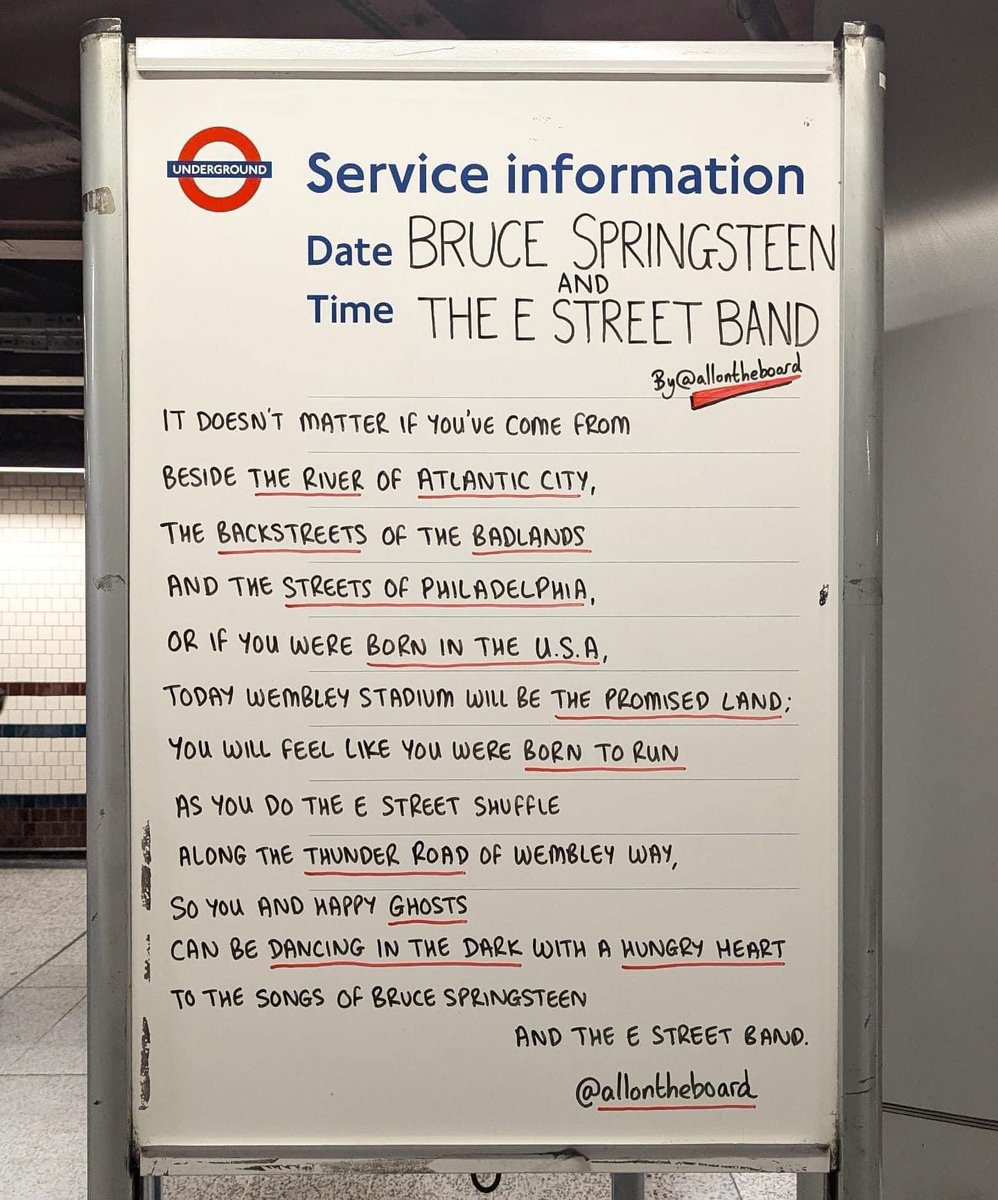 UNDERGROUND
Service information
Date BRUCE SPRINGSTEEN
AND
Time THE E STREET BAND
By @allontheboard
IT DOESN'T MATTER IF YOU'VE COME FROM
BESIDE THE RIVER OF ATLANTIC CITY,
THE BACKSTREETS OF THE BADLANDS
AND THE STREETS OF PHILADELPHIA,
OR IF YOU WERE BORN IN THE U.S.A,
TODAY WEMBLEY STADIUM WILL BE THE PROMISED LAND;
YOU WILL FEEL LIKE YOU WERE BORN TO RUN
AS YOU DO THE E STREET SHUFFLE
ALONG THE THUNDER ROAD OF WEMBLEY WAY,
SO YOU AND HAPPY GHOSTS
CAN BE DANCING IN THE DARK WITH A HUNGRY HEART
TO THE SONGS OF BRUCE SPRINGSTEEN
AND THE E STREET BAND.
@allontheboard